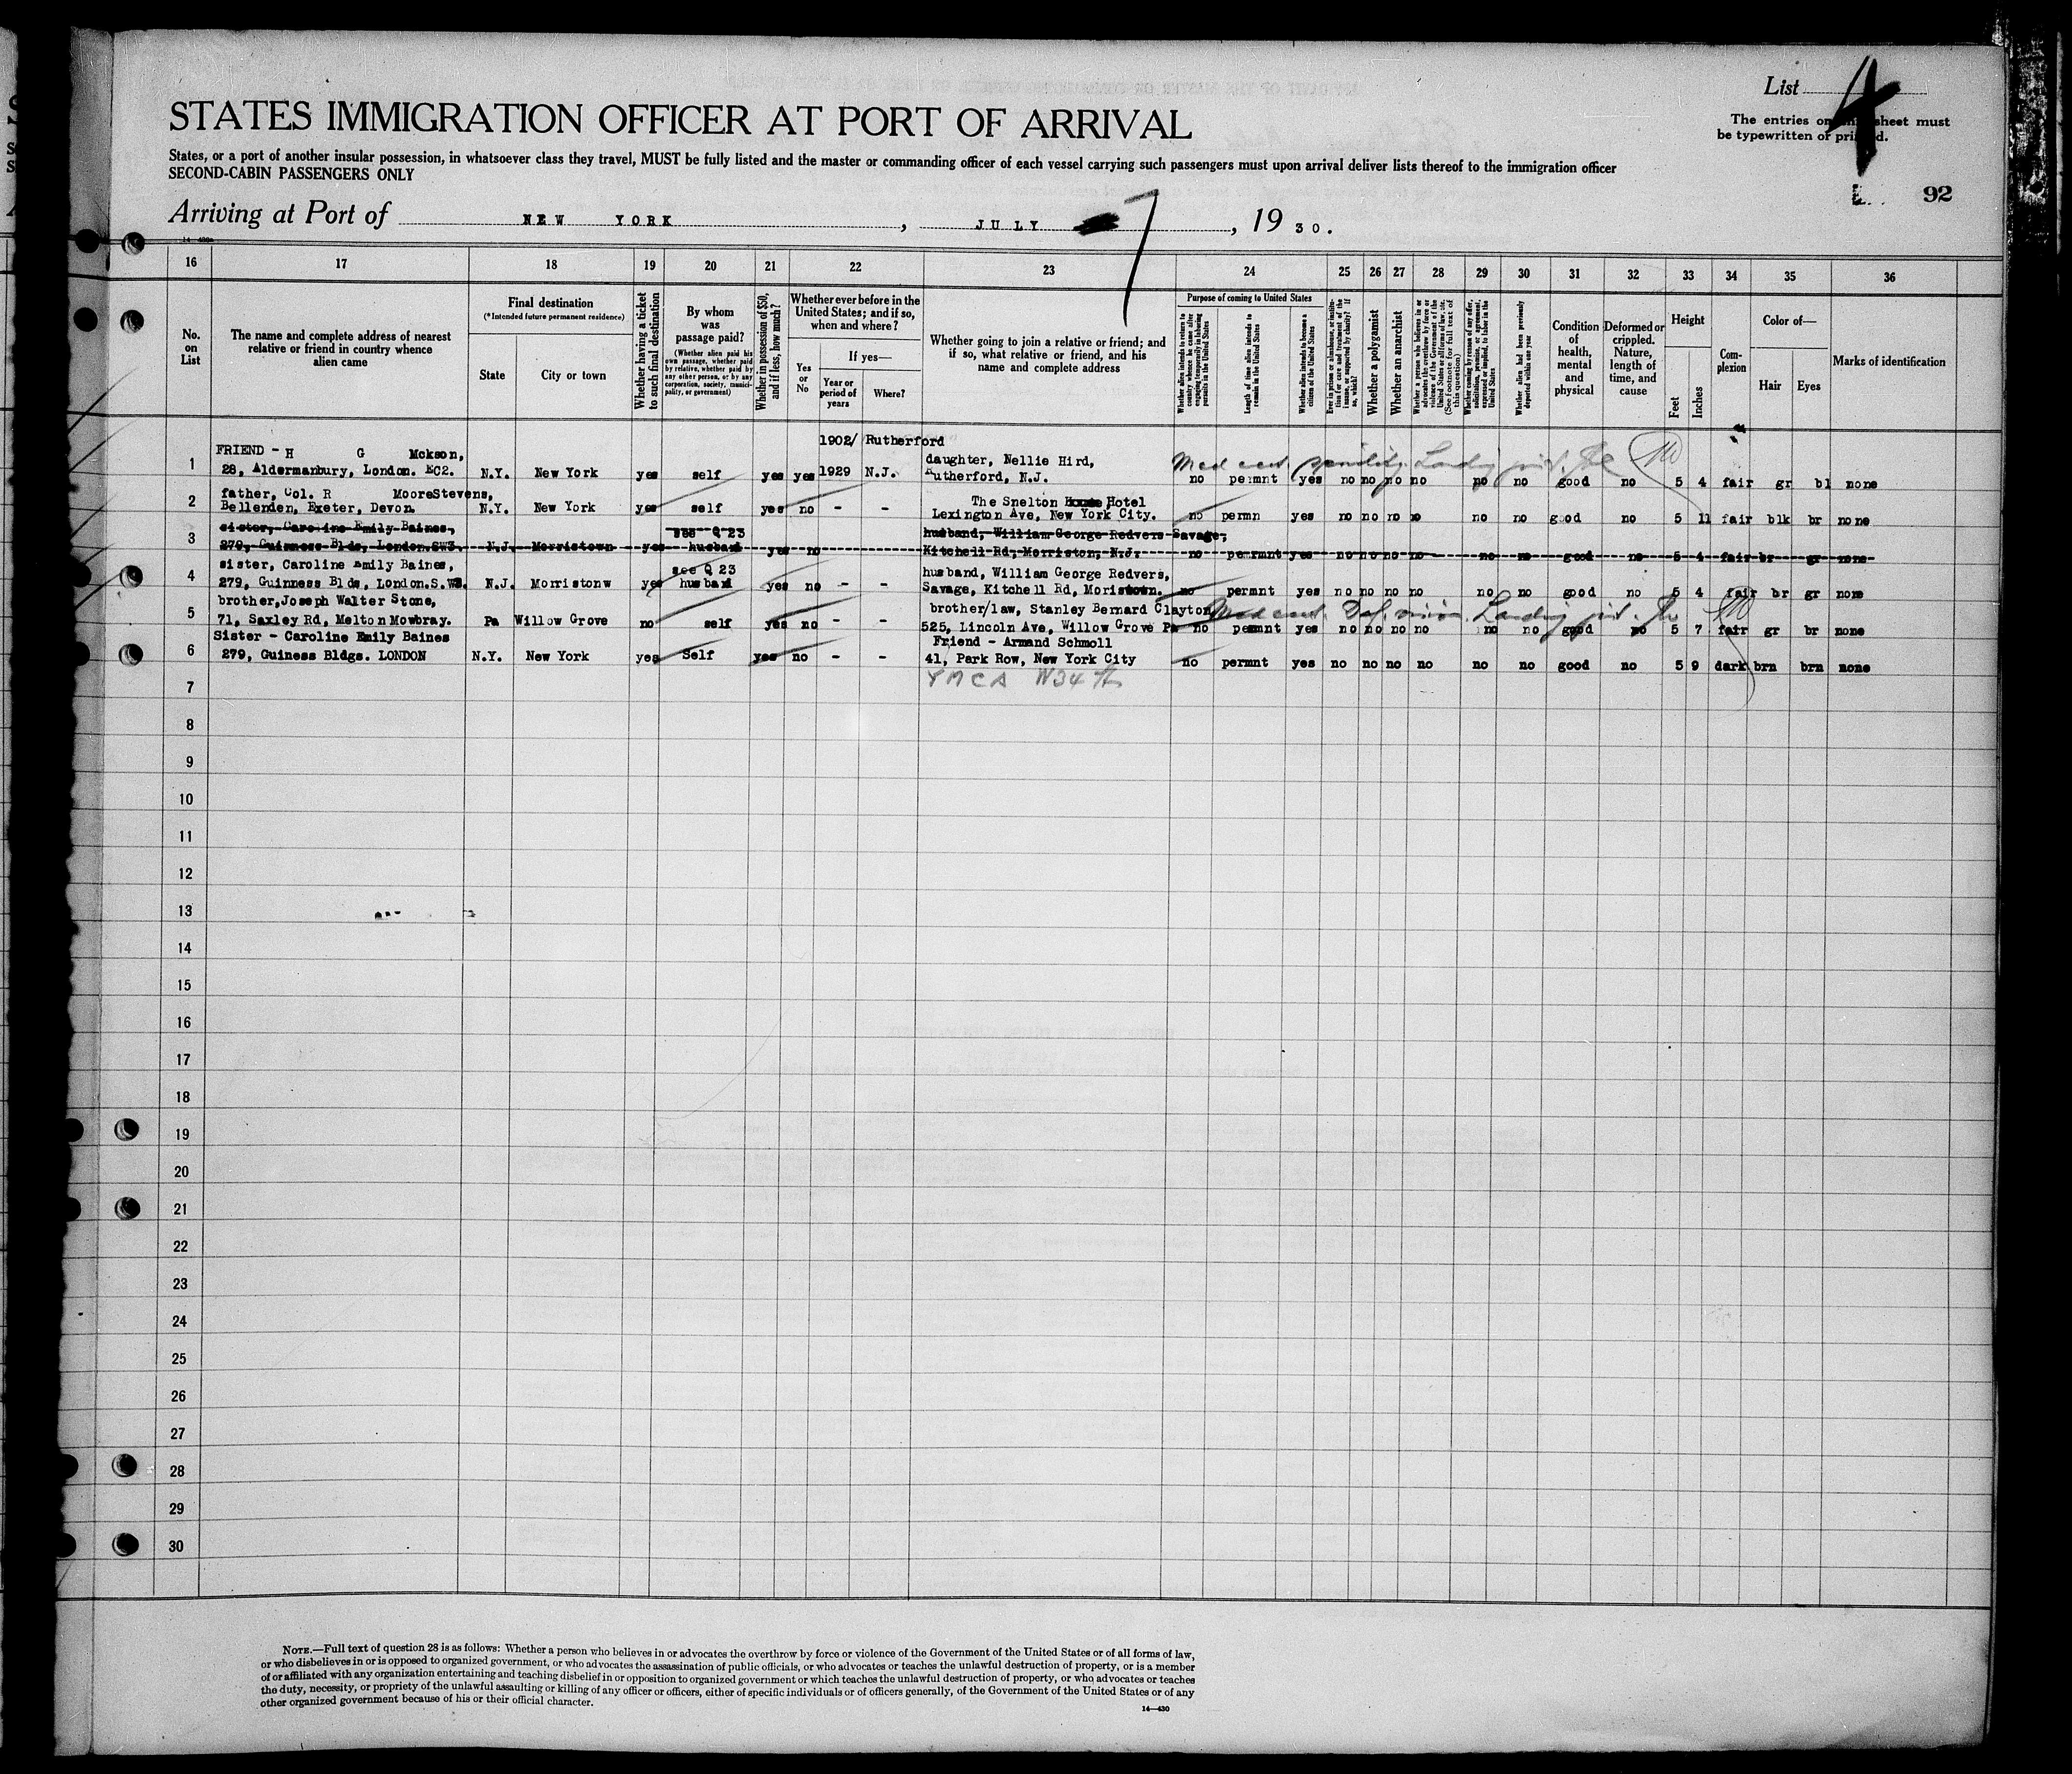 List 4
The entries on this sheet must
be typewritten or printed.
STATES IMMIGRATION OFFICER AT PORT OF ARRIVAL
States, or a port of another insular possession, in whatsoever class they travel, MUST be fully listed and the master or commanding officer of each vessel carrying such passengers must upon arrival deliver lists thereof to the immigration officer
SECOND-CABIN PASSENGERS ONLY
92
Arriving at Port of NEW YORK, JULY 7, 1930.
16 17 18 19 20 21 22 23 24 25 26 27 28 29 30 31 32 33 34 35 36
No. on List
The name and complete address of nearest relative or friend in country whence alien came
Final destination
(*Intended future permanent residence)
State
City or town
Whether having a ticket to such final destination
By whom was passage paid?
(Whether alien paid his own passage, whether paid by relative, whether paid by any other person, or by any corporation, society, municipality, or government)
Whether in possession of $50, and if less, how much?
Whether ever before in the United States; and if so, when and where?
Yes or No
If yes—
Year or period of years
Where?
Whether going to join a relative or friend; and if so, what relative or friend, and his name and complete address
Purpose of coming to United States
Whether alien intends to return to country whence he came after engaging temporarily in laboring pursuits in the United States
Length of time alien intends to remain in the United States
Whether alien intends to become a citizen of the United States
Ever in prison or almshouse, or institution for care and treatment of the insane, or supported by charity? If so, which?
Whether a polygamist
Whether an anarchist
Whether a person who believes in or advocates the overthrow by force or violence of the Government of the United States or all forms of law, etc. (See footnote for full text of this question)
Whether coming by reason of any offer, solicitation, promise, or agreement, expressed or implied, to labor in the United States
Whether alien had been previously deported within one year
Condition of health, mental and physical
Deformed or crippled. Nature, length of time, and cause
Height
Feet
Inches
Complexion
Color of—
Hair
Eyes
Marks of identification
1902/ Rutherford
FRIEND - H G Mckson, daughter, Nellie Hird, Med cert
1 28, Aldermanbury, London. EC2. N.Y. New York yes self yes yes 1929 N.J. Rutherford, N.J. no permnt yes no no no no no no good no 5 4 fair gr bl none
father, Col. R MooreStevens, The Snelton Hotel
2 Bellenden, Exeter, Devon. N.Y. New York yes self yes no - - Lexington Ave, New York City. no permn yes no no no no no no good no 5 11 fair blk br none
sister, Caroline Emily Baines, see Q 23 husband, William George Redvers Savage,
3 279, Guinness Blds, London.SW3. N.J. Morristown yes husband yes no Kitchell Rd, Morriston, N.J. no permnt yes no no no no no no good no 5 4 fair br gr none
sister, Caroline Emily Baines, see Q 23 husband, William George Redvers,
4 279, Guinness Blds, London.S.W3. N.J. Morristonw yes husband yes no - - Savage, Kitchell Rd, Moristown. no permnt yes no no no no no no good no 5 4 fair br gr none
brother, Joseph Walter Stone, brother/law, Stanley Bernard Clayton, Med cert. Def. vision. Landing
5 71, Saxley Rd, Melton Mowbray. Pa Willow Grove no self yes no - - 525, Lincoln Ave, Willow Grove Pa no permnt yes no no no no no no good no 5 7 fair gr br none
Sister - Caroline Emily Baines Friend - Armand Schmoll
6 279, Guiness Bldgs. LONDON N.Y. New York yes Self yes no - - 41, Park Row, New York City no permnt yes no no no no no no good no 5 9 dark brn brn none
7 YMCA W34 St
8
9
10
11
12
13
14
15
16
17
18
19
20
21
22
23
24
25
26
27
28
29
30
NOTE.—Full text of question 28 is as follows: Whether a person who believes in or advocates the overthrow by force or violence of the Government of the United States or of all forms of law,
or who disbelieves in or is opposed to organized government, or who advocates the assassination of public officials, or who advocates or teaches the unlawful destruction of property, or is a member
of or affiliated with any organization entertaining and teaching disbelief in or opposition to organized government or which teaches the unlawful destruction of property, or who advocates or teaches
the duty, necessity, or propriety of the unlawful assaulting or killing of any officer or officers, either of specific individuals or of officers generally, of the Government of the United States or of any
other organized government because of his or their official character.
14—430